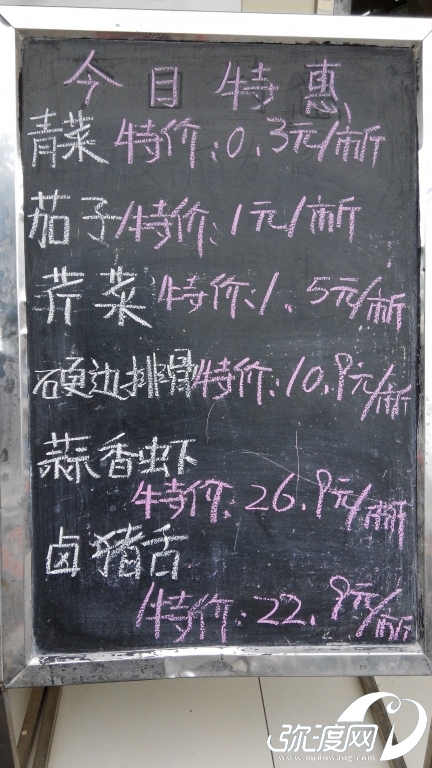 今日特惠
青菜 特价:0.3元/市斤
茄子 特价:1元/市斤
芹菜 特价:1.5元/市斤
硬边排骨 特价:10.9元/市斤
蒜香虾
特价:26.9元/市斤
卤猪舌
特价:22.9元/市斤
弥渡网
www.miduwang.com